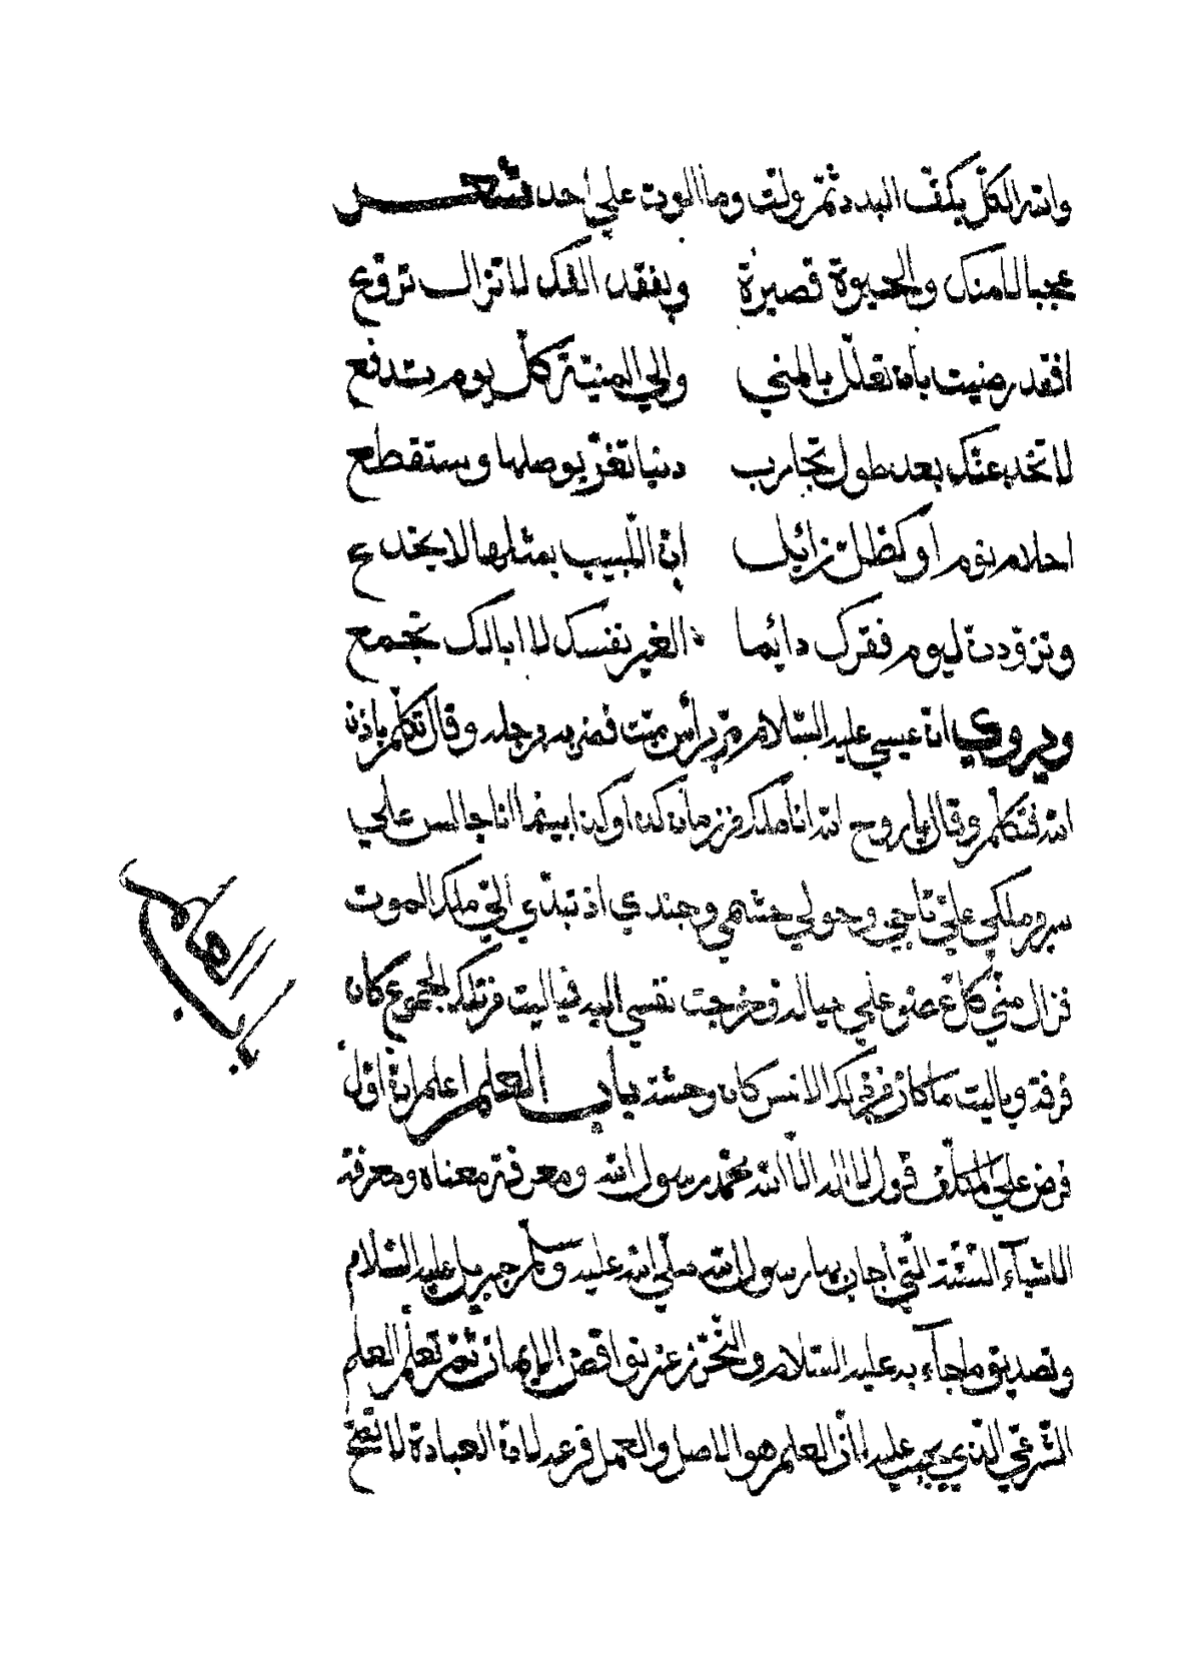 وانت الكل يكف البدد ثم ولت وما الموت علي احد شعر
عجبا لامنك والحيوة قصيرة وبفقد الفك لا تزال تروع
افقد رضيت بان تعلل بالمني والي المنية كل يوم تدفع
لا تخدعنك بعد طول تجارب دنيا تغر بوصلها وستقطع
احلام نوم او كظل زائل ان اللبيب بمثلها لا يخدع
وتزودن ليوم فقرك دائما الغير نفسك لا ابالك تجمع
وروي ان عيسي عليه السلام مر برأس ميت فضربه برجله وقال تكلم باذن
الله فتكلم وقال يا روح الله انا ملك من زمان كذا وكذا بينما انا جالس علي
سرير ملكي علي تاجي وحولي حشمي وجندي اذ تبدي الي ملك الموت
فزال مني كل عضو علي حياله فخرجت نفسي اليه فيا ليت من تلك الجموع كان
فرقة ويا ليت ما كان من ذلك الانس كان وحشة باب العلم اعلم ان اول
فرض علي المكلف قول لا اله الا الله محمد رسول الله ومعرفة معناه ومعرفة
الاشياء الستة التي اجاب بها رسول الله صلي الله عليه وسلم جبريل عليه السلام
وتصديق ما جاء به عليه السلام والتحرز عن نواقض الايمان ثم تعلم العلم
الشرعي الذي يجب عليه لان العلم هو الاصل والعمل فرعه لان العبادة لا تصح
باب العلم